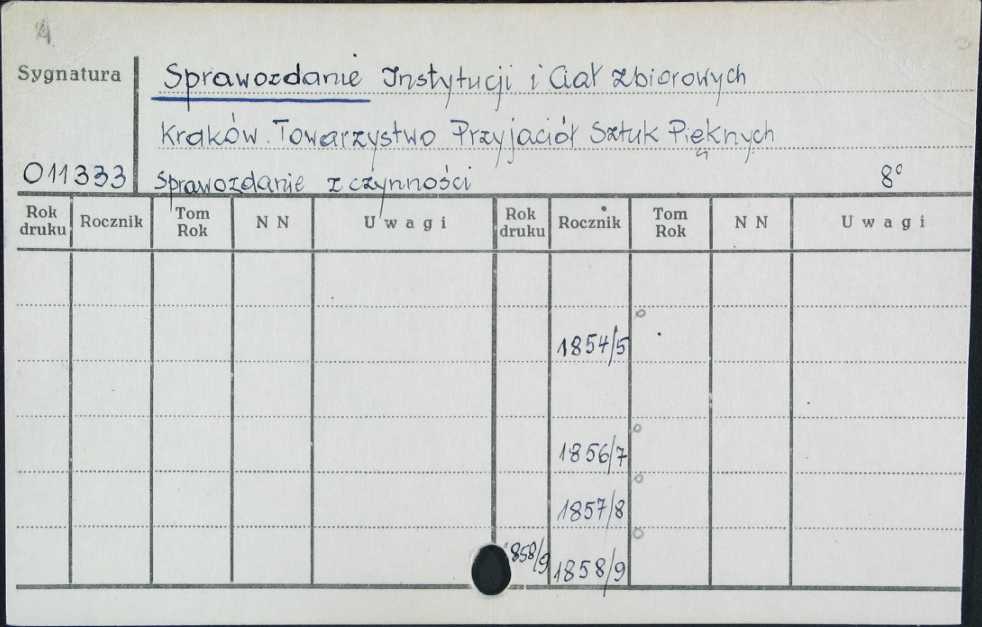 4
Sygnatura
Sprawozdanie Instytucji i Ciał Zbiorowych
Kraków. Towarzystwo Przyjaciół Sztuk Pięknych
011333 Sprawozdanie z czynności 8°
Rok druku Rocznik Tom Rok N N Uwagi Rok druku Rocznik Tom Rok N N Uwagi
1854/5
1856/7
1857/8
1858/9 1858/9